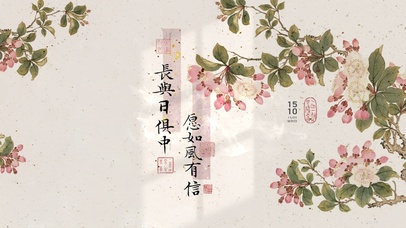 愿如風有信
長與日俱中
15
10